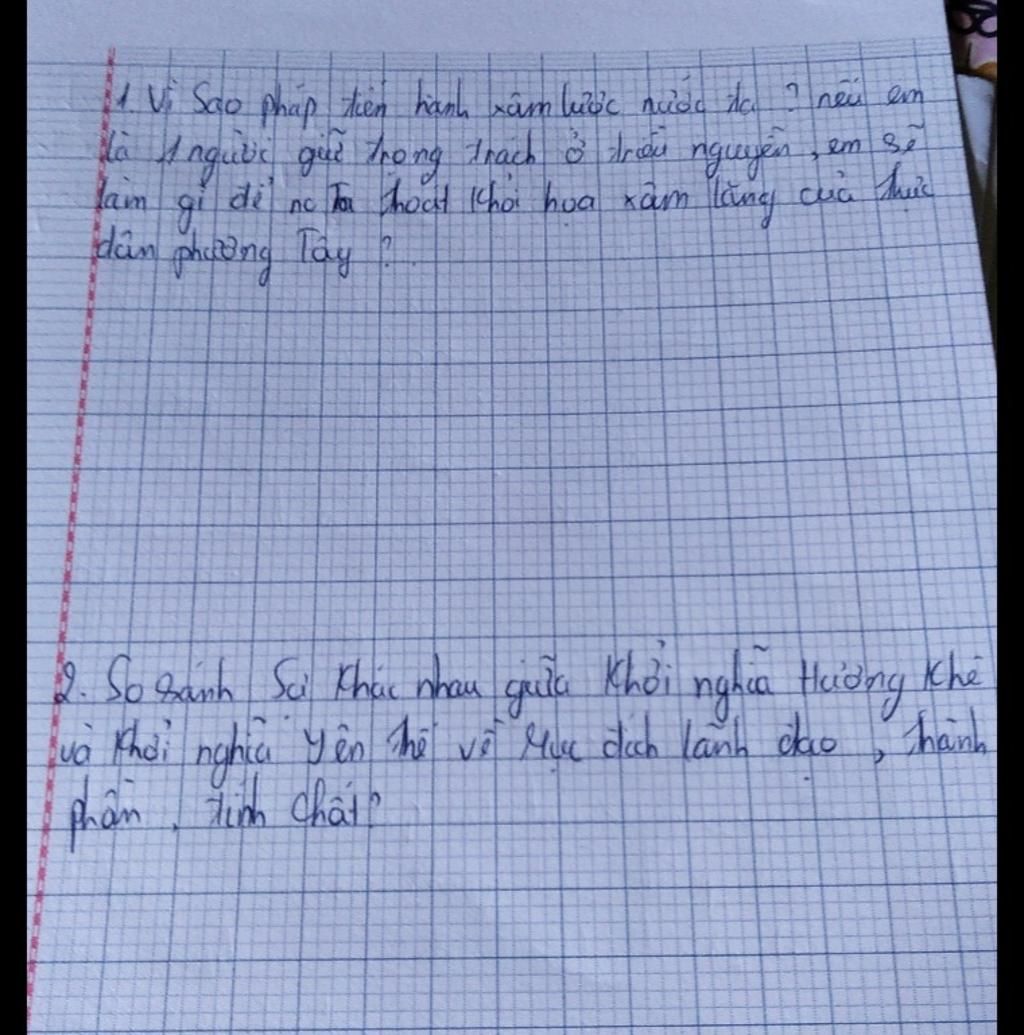 1. Vì Sao pháp tiến hành xâm lược nước ta ? nếu em
là 1 người giữ trong trách ở triều nguyễn, em sẽ
làm gì để nc Ta thoát khỏi họa xâm lăng của thực
dân phương Tây ?
2. So sánh Sự khác nhau giữa khởi nghĩa Hương Khê
và khởi nghĩa Yên thế về Mục đích lãnh đạo, thành
phần, tính chất?